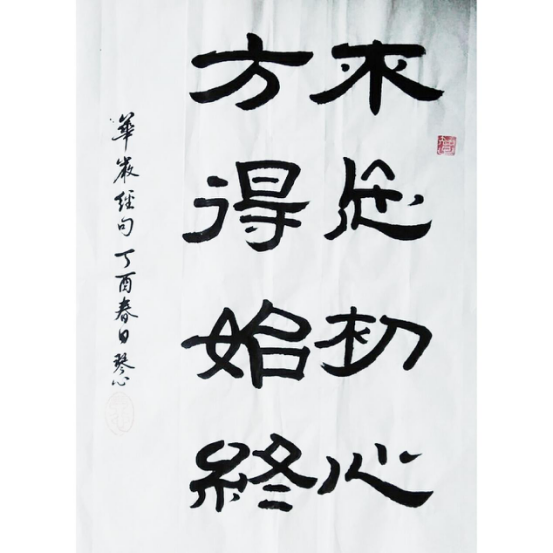 不忘初心
方得始終
華嚴經句丁酉春日琴心